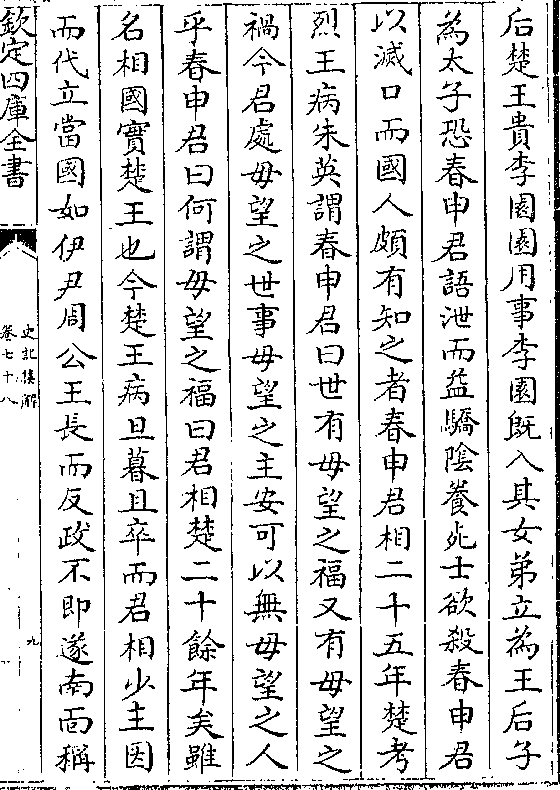 后楚王貴李園園用事李園既入其女弟立為王后子
為太子恐春申君語泄而益驕陰養死士欲殺春申君
以滅口而國人頗有知之者春申君相二十五年楚考
烈王病朱英謂春申君曰世有毋望之福又有毋望之
禍今君處毋望之世事毋望之主安可以無毋望之人
乎春申君曰何謂毋望之福曰君相楚二十餘年矣雖
名相國實楚王也今楚王病旦暮且卒而君相少主因
而代立當國如伊尹周公王長而反政不即遂南面稱
欽定四庫全書
史記集解
卷七十八
九